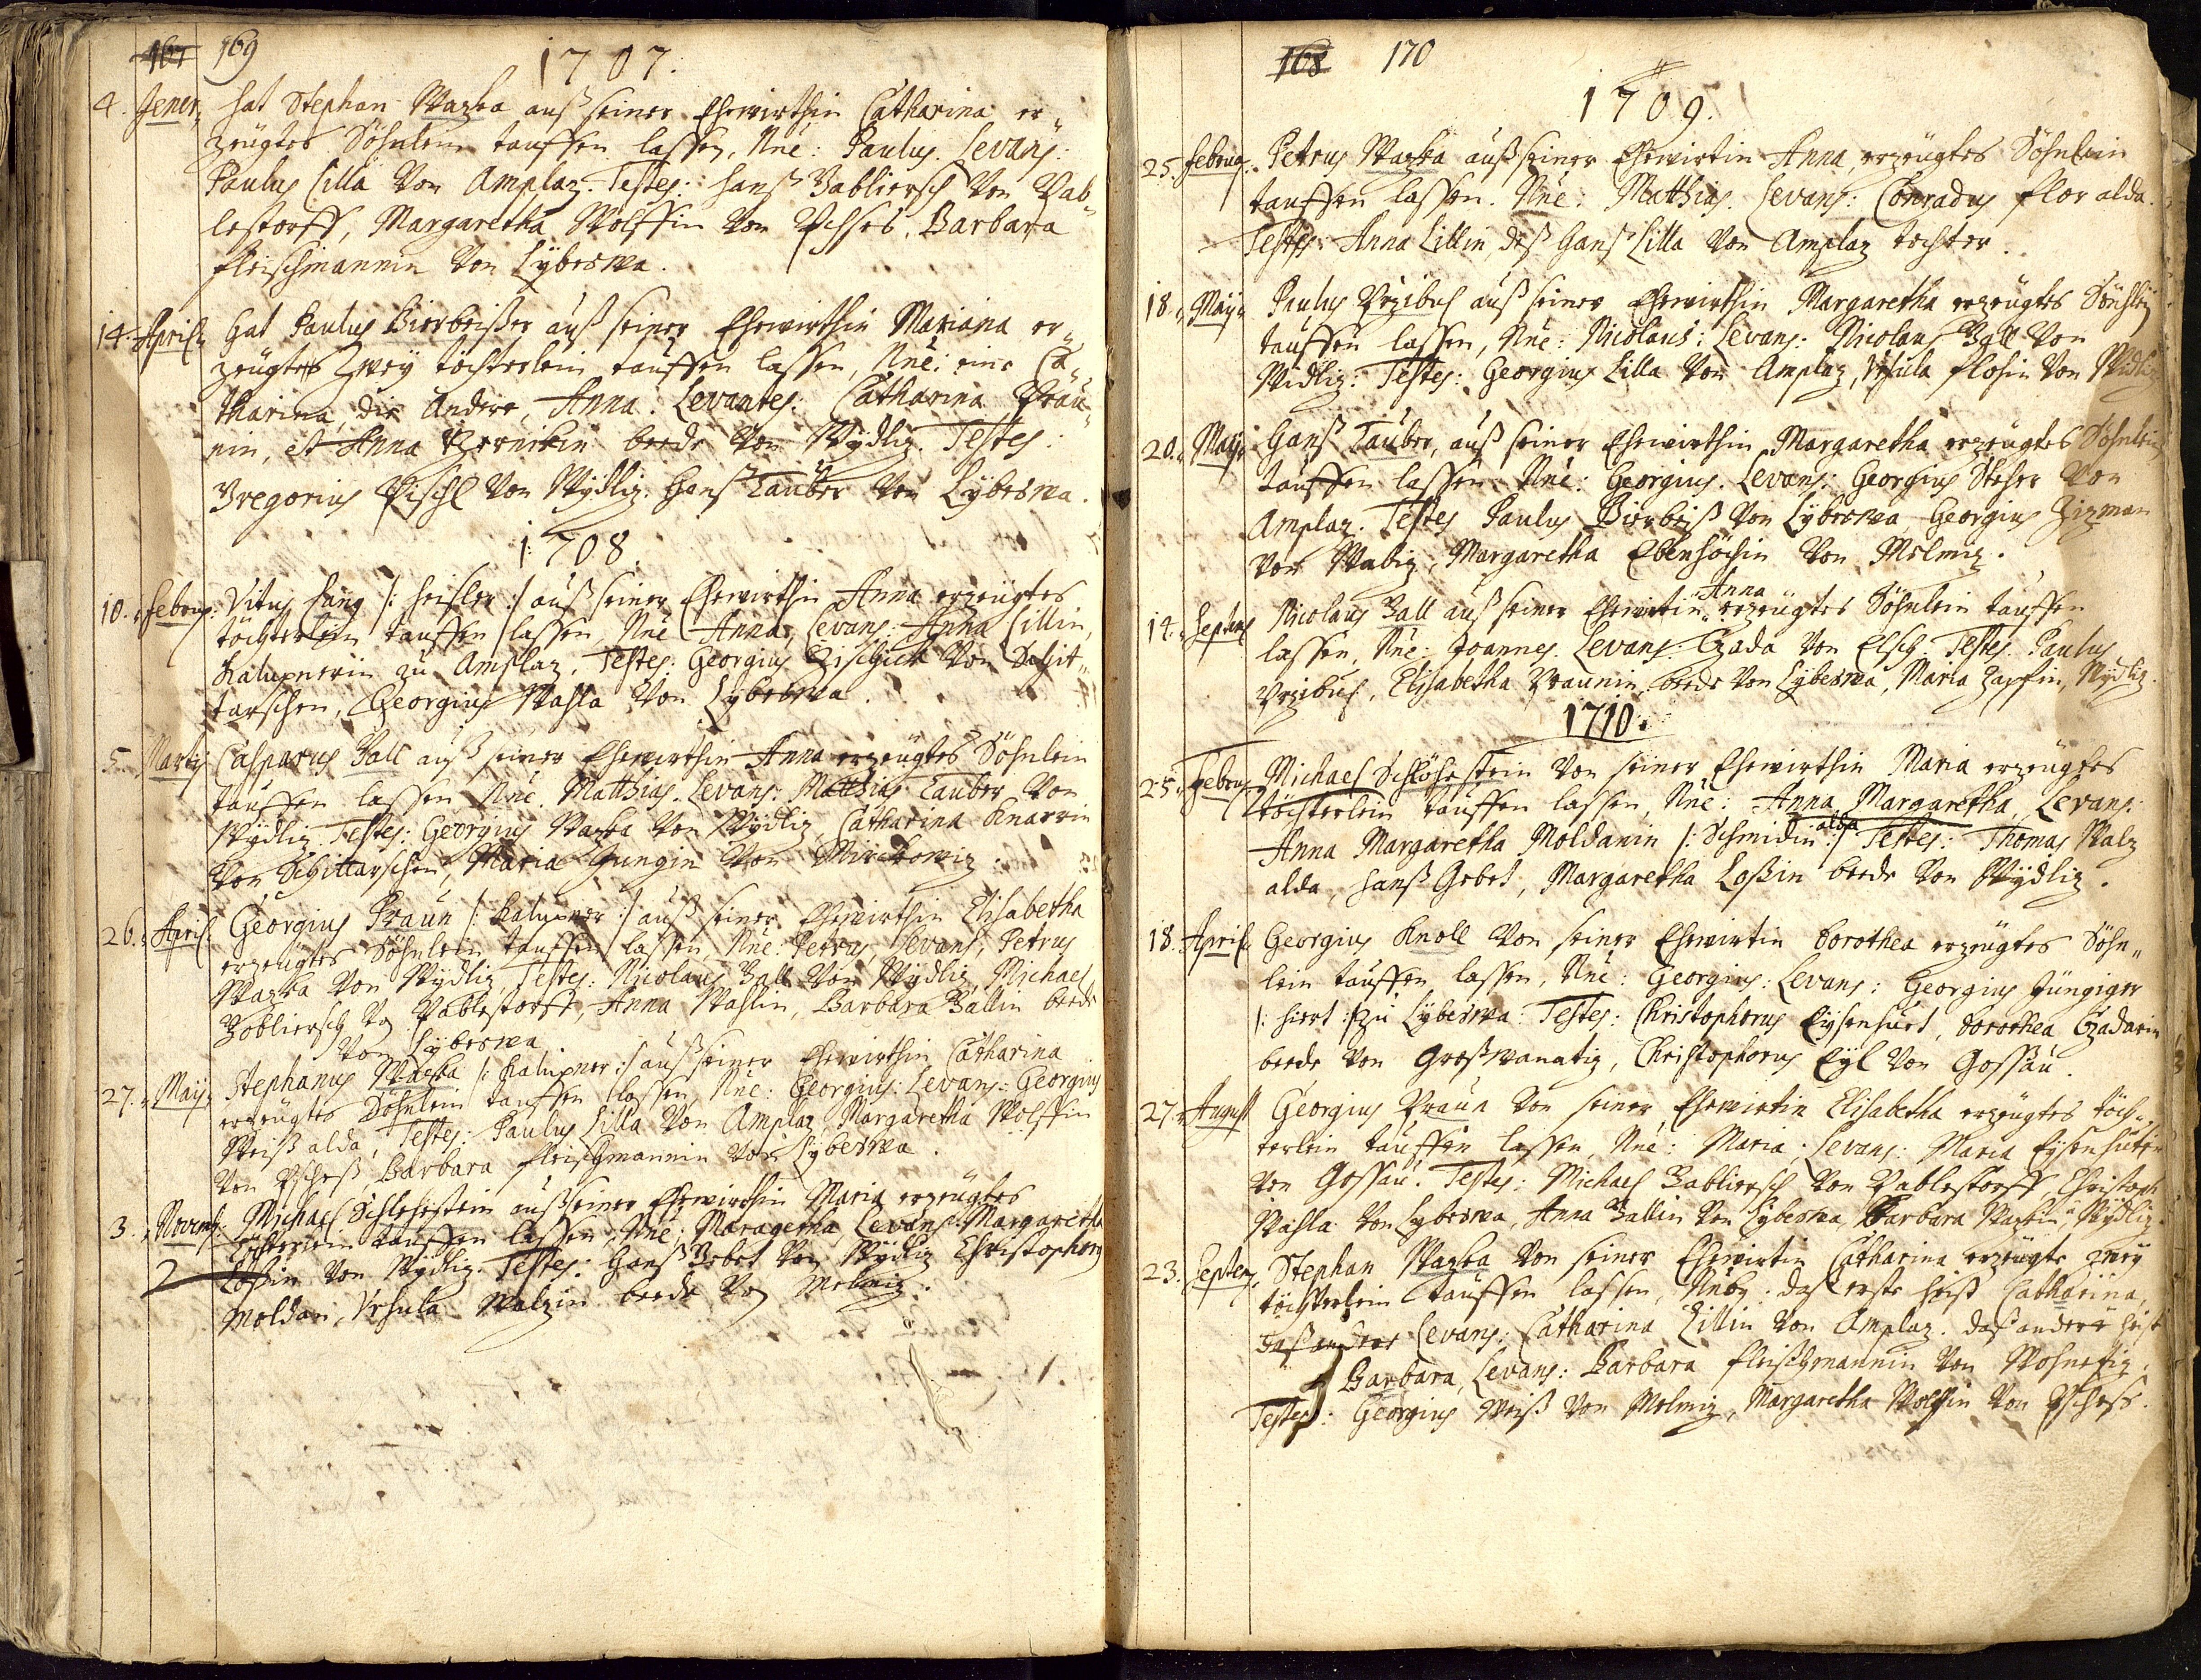 167 169
1707.
4. Jener, hat Stephan Wazka auß seiner Ehewirthin Catharina er„
zeugtes Söhnlein tauffen lassen, Nne: Paulus. Levans:
Paulus Lilla von Amplaz. Testes: Hanß Babliersch von Pab„
lestorff, Margaretha Wolffin von Pschess, Barbara
Fleischmannin von Lybeswa.
14. April, hat Paulus Bierbeißer auß seiner Ehewirthin Mariana er„
zeugtes Zwey töchterlein tauffen lassen, Nne: eine Ca„
tharina, die Andere, Anna. Levantes: Catharina Präu„
nin, et Anna beede von Wydliz. Testes:
Gregorius Pischl von Wydliz. Hanß Tauber von Lybeswa.
1708.
10. Febru: Vitus Lang /: heisler :/ auß seiner Ehewirthin Anna erzeugtes
töchterlein tauffen lassen, Nne Anna, Levans: Anna Lillin,
Kalupnerin zu Amplaz. Testes: Georgius von Schit„
tarschen, Georgius Wahla von Lybeswa.
5. Martij Casparus Ball auß seiner Ehewirthin Anna erzeugtes Söhnlein
tauffen lassen Nne. Matthias. Levans: Matthias Tauber von
Wydliz. Testes: Georgius Wazka von Wydliz, Catharina Knarrin
von Schittarschen, Maria Jungin von Mirckowiz.
26. April Georgius Praun /: Kalupner :/ auß seiner Ehewirthin Elisabetha
erzeugtes Söhnlein tauffen lassen, Nne: Petrus, Levans, Petrus
Wazka von Wydliz, Testes: Nicolaus Ball von Wydliz, Michael
Bobliersch von Pablestorff, Anna Wahlin, Barbara Ballin beede
von Lybeswa.
27. May, Stephanus Wazka /: Kalupner :/ auß seiner Ehewirthin Catharina
erzeugtes Söhnlein tauffen lassen, Nne: Georgius: Levans: Georgius
Weiß alda, Testes: Paulus Lilla von Amplaz, Margaretha Wolffin
von Pscheß, Barbara Fleischmannin von Lybeswa.
3. Novemb: Michael Schlehestein auß seiner Ehewirthin Maria erzeugtes
töchterlein tauffen lassen, Nne, Maragetha, Levans: Margaretha
Loßin von Wydliz. Testes: Hanß Gebet von Wydliz Christophorus
Moldan, Ursula Walzin beede von Melmiz.
168 170
1709.
25. Febru: Petrus Wazka auß seiner Ehewirtin Anna, erzeugtes Söhnlein
tauffen lassen. Nne: Matthias. Levans: Conradus Flor alda.
Testes: Anna Lillin, deß Hanß Lilla von Amplaz tochter.
18. May, Paulus Przibul auß seiner Ehewirthin Margaretha erzeugtes Söhnlein
tauffen lassen, Nne: Nicolaus: Levans: Nicolaus Ball von
Widliz. Testes: Georgius Lilla von Amplaz, Ursula Flohin von Widliz
20. May, Hanß Tauber, auß seiner Ehewirthin Margaretha erzeugtes Söhnlein
tauffen lassen. Nne: Georgius. Levans: Georgius Steher von
Amplaz. Testes Paulus Bierbeiß von Lybeswa, Georgius Zizman
von Wabiz, Margaretha Ebenhöchin von Melmiz.
14. Septem Nicolaus Ball auß seiner Ehewirtin Anna erzeugtes Söhnlein tauffen
lassen, Nne: Joannes. Levans: Czada von Elsch. Testes. Paulus
Przibul, Elisabetha Praunin, beede von Lybeswa, Maria Zapfin, Wydliz.
1710.
25. Febru: Michael Schlöhestein von seiner Ehewirthin Maria erzeugtes
töchterlein tauffen lassen, Nne: Anna Margaretha, Levans:
Anna Margaretha Moldanin /: Schmidin alda :/ Testes: Thomas Walz
alda, Hanß Gebet, Margaretha Loßin beede von Wydliz.
18. April Georgius Knoll von seiner Ehewirtin Dorothea erzeugtes Söhn„
lein tauffen lassen, Nne: Georgius: Levans: Georgius Jüngiger
/: hiert :/ zu Lybeswa: Testes: Christophorus Eysenhuet, Dorothea Czadarin
beede von Großwanatiz, Christophorus Eyl von Gossau.
27. August Georgius Praun von seiner Ehewirtin Elisabetha erzeugtes töch„
terlein tauffen lassen, Nne: Maria. Levans: Maria Eysenhutin
von Gossau. Testes: Michael Babliersch von Pablestorff, Christoph
Wahla von Lybeswa, Anna Ballin von Lybeswa, Barbara Wazkin, Wydliz.
23. Septem: Stephan Wazka von seiner Ehewirtin Catharina erzeugte zwey
töchterlein tauffen lassen, Nnby: daß erste heist Catharina,
daß andere Levans: Catharina Lillin von Amplaz. daß andere heist
Barbara, Levans: Barbara Fleischmannin von Wohnetiz.
Testes: Georgius Weiß von Melmiz, Margaretha Wolffin von Pscheß.